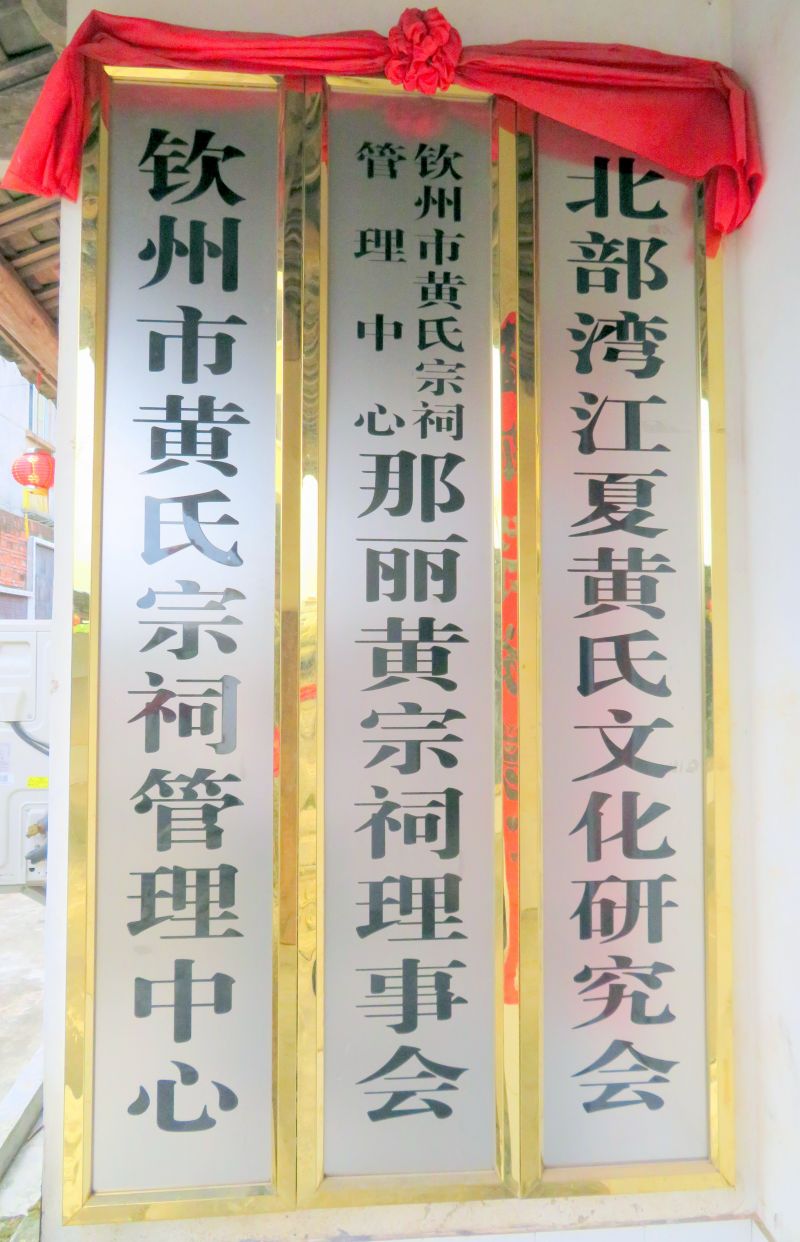 钦州市黄氏宗祠管理中心
钦州市黄氏宗祠
管理中心
那丽黄宗祠理事会
北部湾江夏黄氏文化研究会